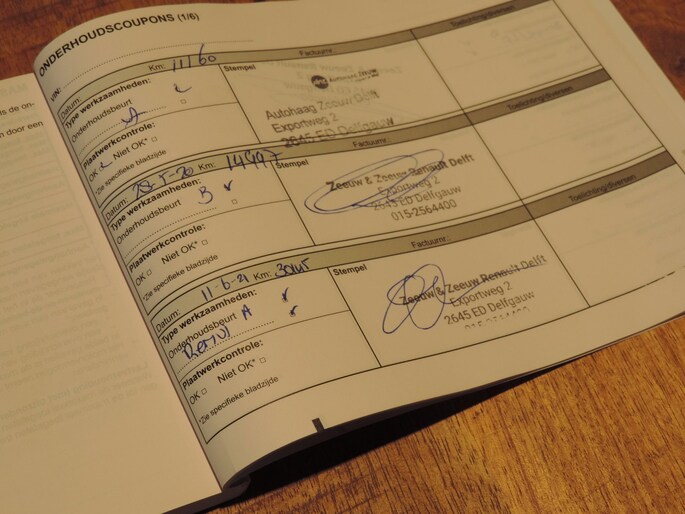 ONDERHOUDSCOUPONS (1/6)
VIN:
Datum: Km: 11160 Factuurnr.:
Type werkzaamheden: Stempel Toelichting/diversen
Onderhoudsbeurt
A
Plaatwerkcontrole:
OK Niet OK*
*Zie specifieke bladzijde
Autohaag Zeeuw Delft
Exportweg 2
2645 ED Delfgauw
Datum: 28-5-20 Km: 14997 Factuurnr.:
Type werkzaamheden: Stempel Toelichting/diversen
Onderhoudsbeurt B
Plaatwerkcontrole:
OK Niet OK*
*Zie specifieke bladzijde
Zeeuw & Zeeuw Renault Delft
Exportweg 2
2645 ED Delfgauw
015-2564400
Datum: 11-6-21 Km: Factuurnr.:
Type werkzaamheden: Stempel Toelichting/diversen
Onderhoudsbeurt A
Plaatwerkcontrole:
OK Niet OK*
*Zie specifieke bladzijde
Zeeuw & Zeeuw Renault Delft
Exportweg 2
2645 ED Delfgauw
015-2564400
ls de on-
n door een